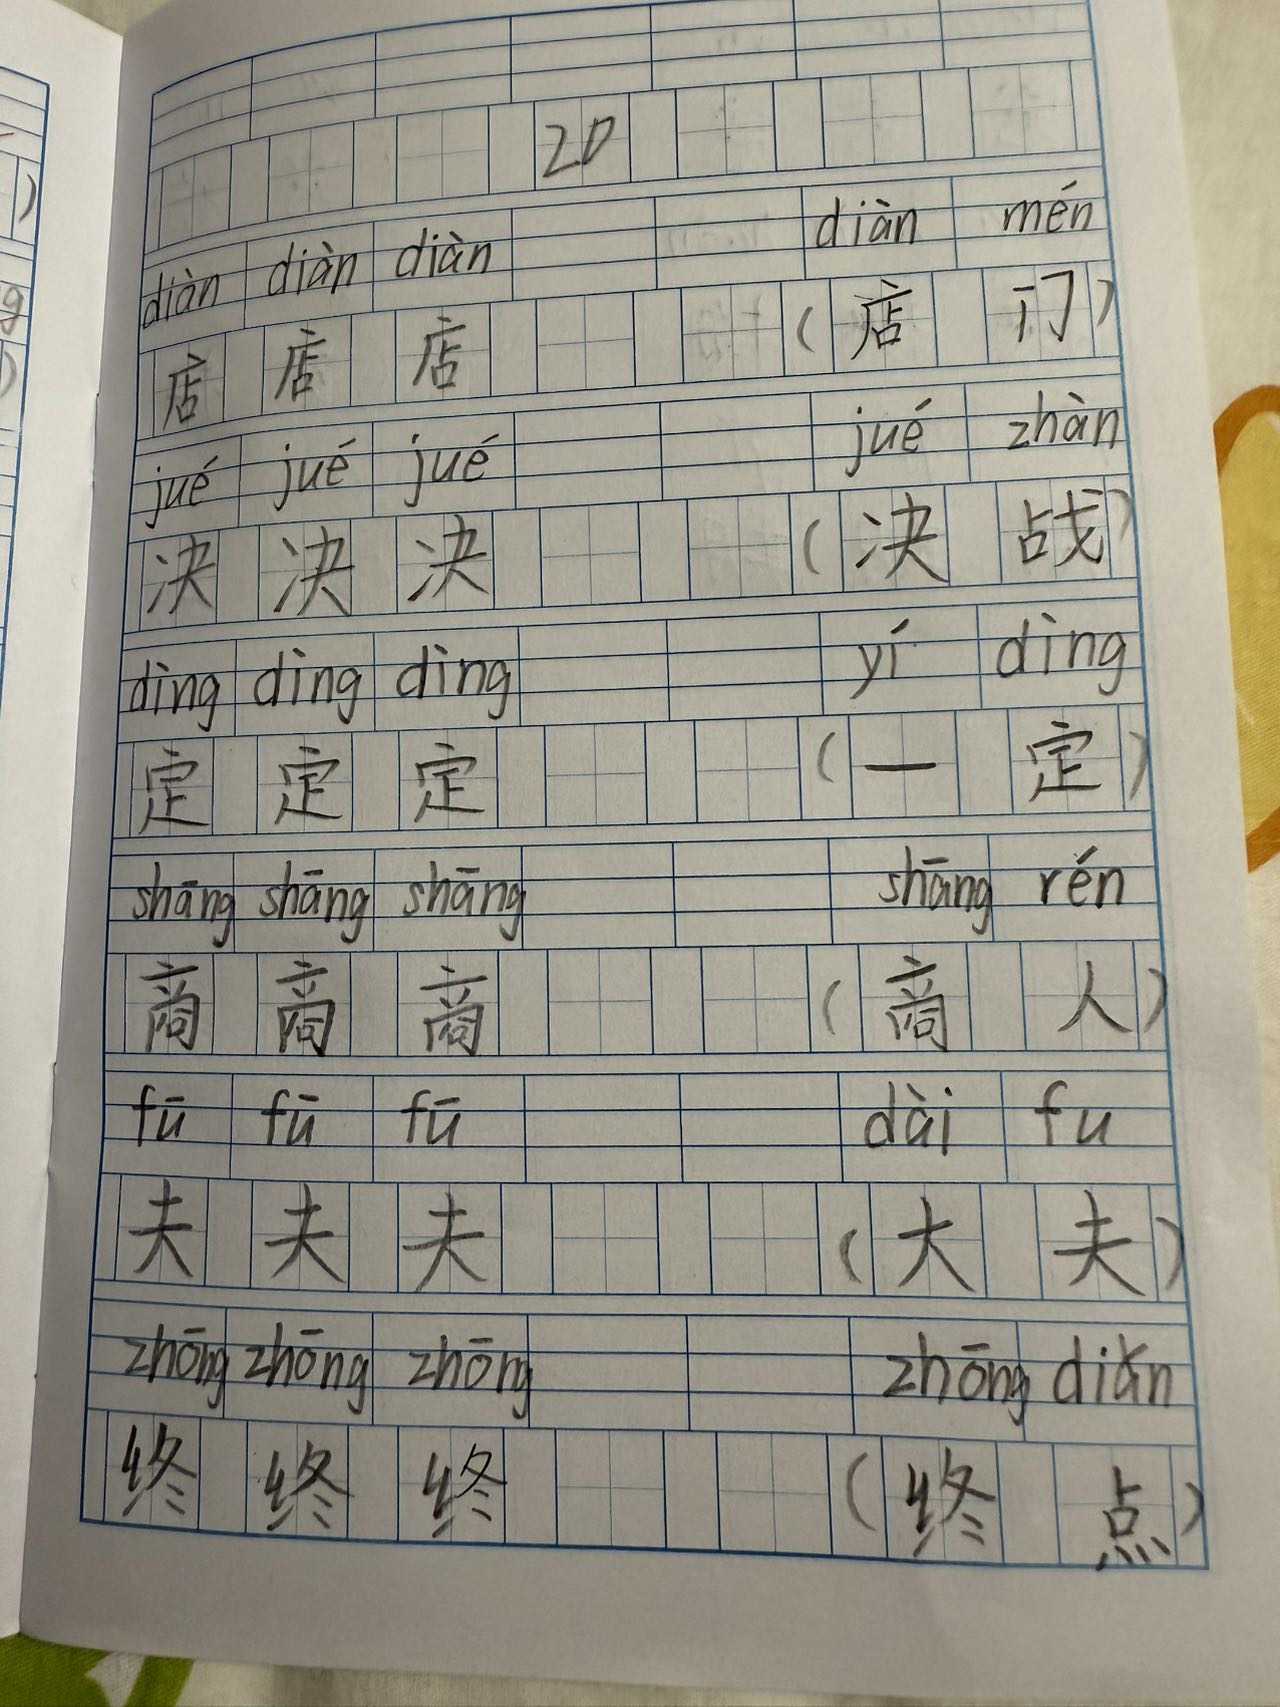 20
diàn diàn diàn diàn mén
店 店 店 (店 门)
jué jué jué jué zhàn
决 决 决 (决 战)
dìng dìng dìng yí dìng
定 定 定 (一 定)
shāng shāng shāng shāng rén
商 商 商 (商 人)
fū fū fū dài fu
夫 夫 夫 (大 夫)
zhōng zhōng zhōng zhōng diǎn
终 终 终 (终 点)